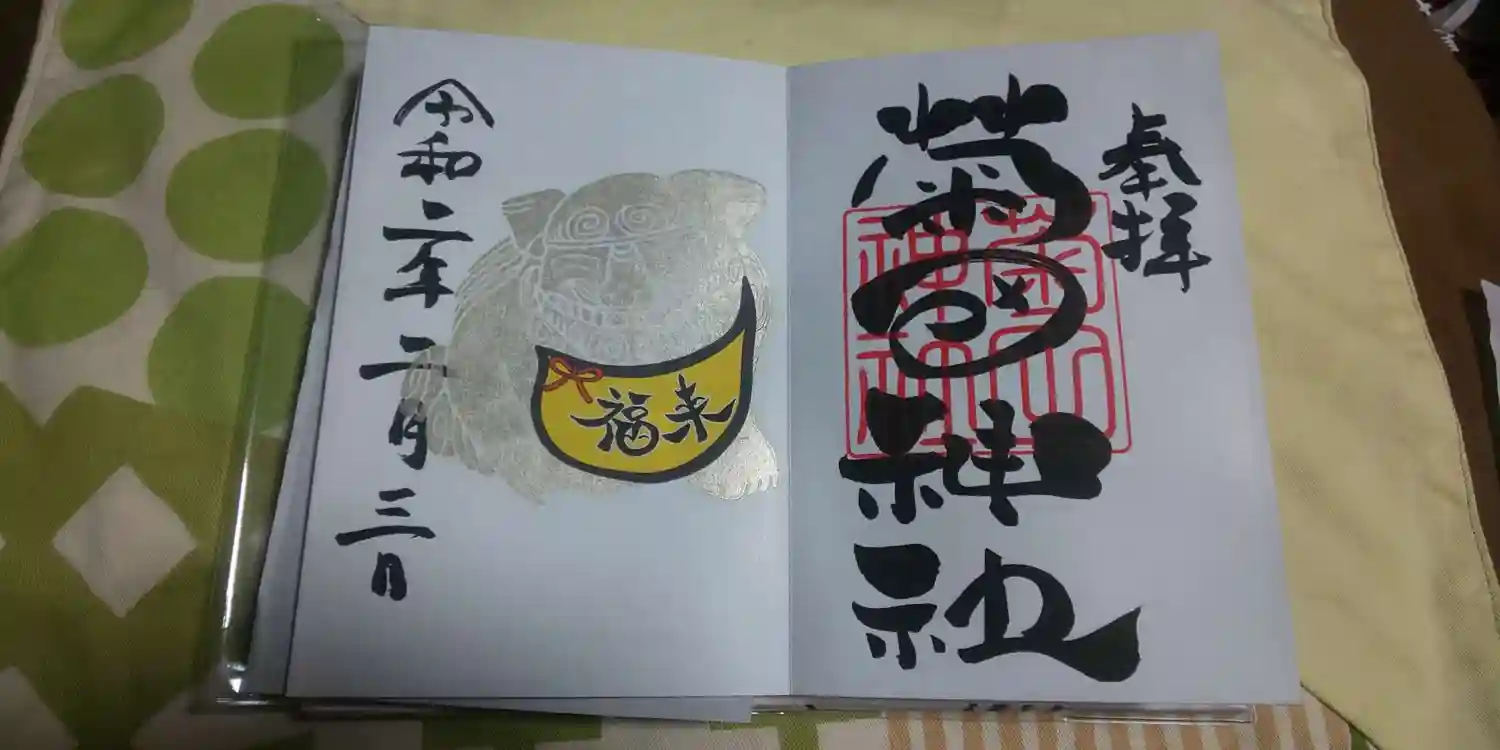 奉拝
菊田神社
福来
令和二年二月三日